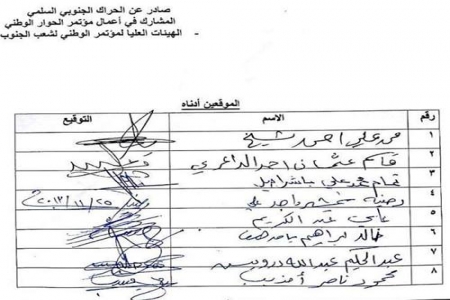 صادر عن الحراك الجنوبي السلمي
المشارك في أعمال مؤتمر الحوار الوطني
- الهيئات العليا لمؤتمر الوطني لشعب الجنوب
الموقعين أدناه
رقم الاسم التوقيع
١ علي احمد
٢ قاسم عثمان احمد الداعري
٣ محمد علي باشراحيل
٤ ٢٠١٣/١١/٢٥
٥ عبد الكريم
٦ خالد ابراهيم
٧ عبدالحكيم عبدالله درويس
٨ محمود ناصر